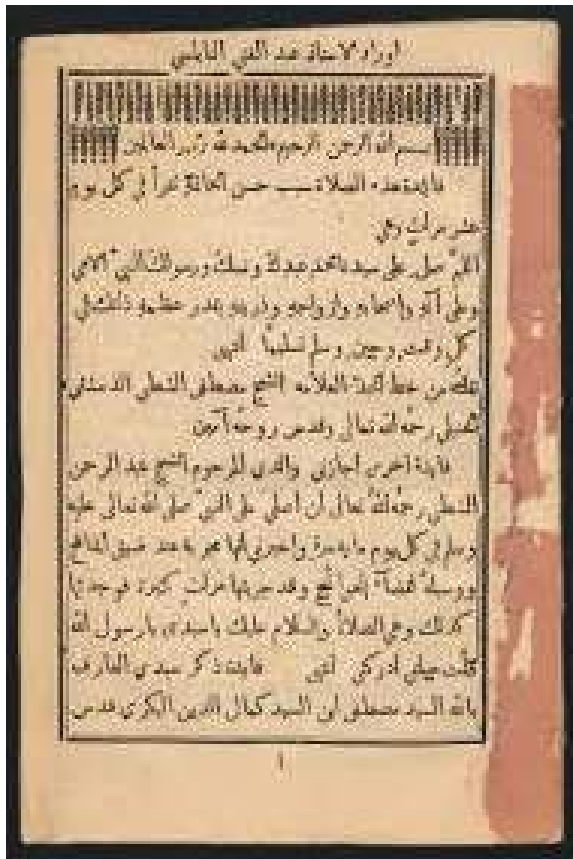 اوراد الاستاذ عبد الغني النابلسي
بسم الله الرحمن الرحيم الحمد لله رب العالمين
فائدة هذه الصلاة سبب حسن الخاتمة تقرأ في كل يوم
عشر مرات وهي
اللهم صل على سيدنا محمد عبدك ونبيك ورسولك النبي الامي
وعلى آله واصحابه وازواجه وذريته بقدر عظمة ذاتك في
كل وقت وحين وسلم تسليما انتهى
من خط العلامه الشيخ مصطفى الشطي الدمشقي
الحنبلي رحمه الله تعالى وقدس روحه آمين
فايدة اخرى اجازني والدي المرحوم الشيخ عبد الرحمن
الشطي رحمه الله تعالى أن أصلي على النبي صلى الله تعالى عليه
وسلم في كل يوم ماية مرة واخبرني انها مجربة عند ضيق
ووسيلة لقضاء الحوائج وقد جربتها مرات كثيرة فوجدتها
كذلك وهي الصلاة والسلام عليك يا سيدي يا رسول الله
قلّت حيلتي أدركني انتهى فايدة ذكر سيدي العارف
بالله السيد مصطفى ابن السيد كمال الدين البكري قدس
١